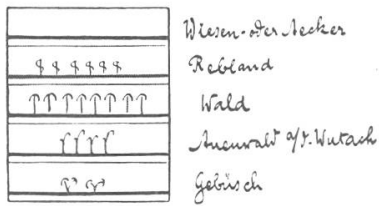 Wiesen- oder Aecker
Rebland
Wald
Auenwald a/d. Wutach
Gebüsch